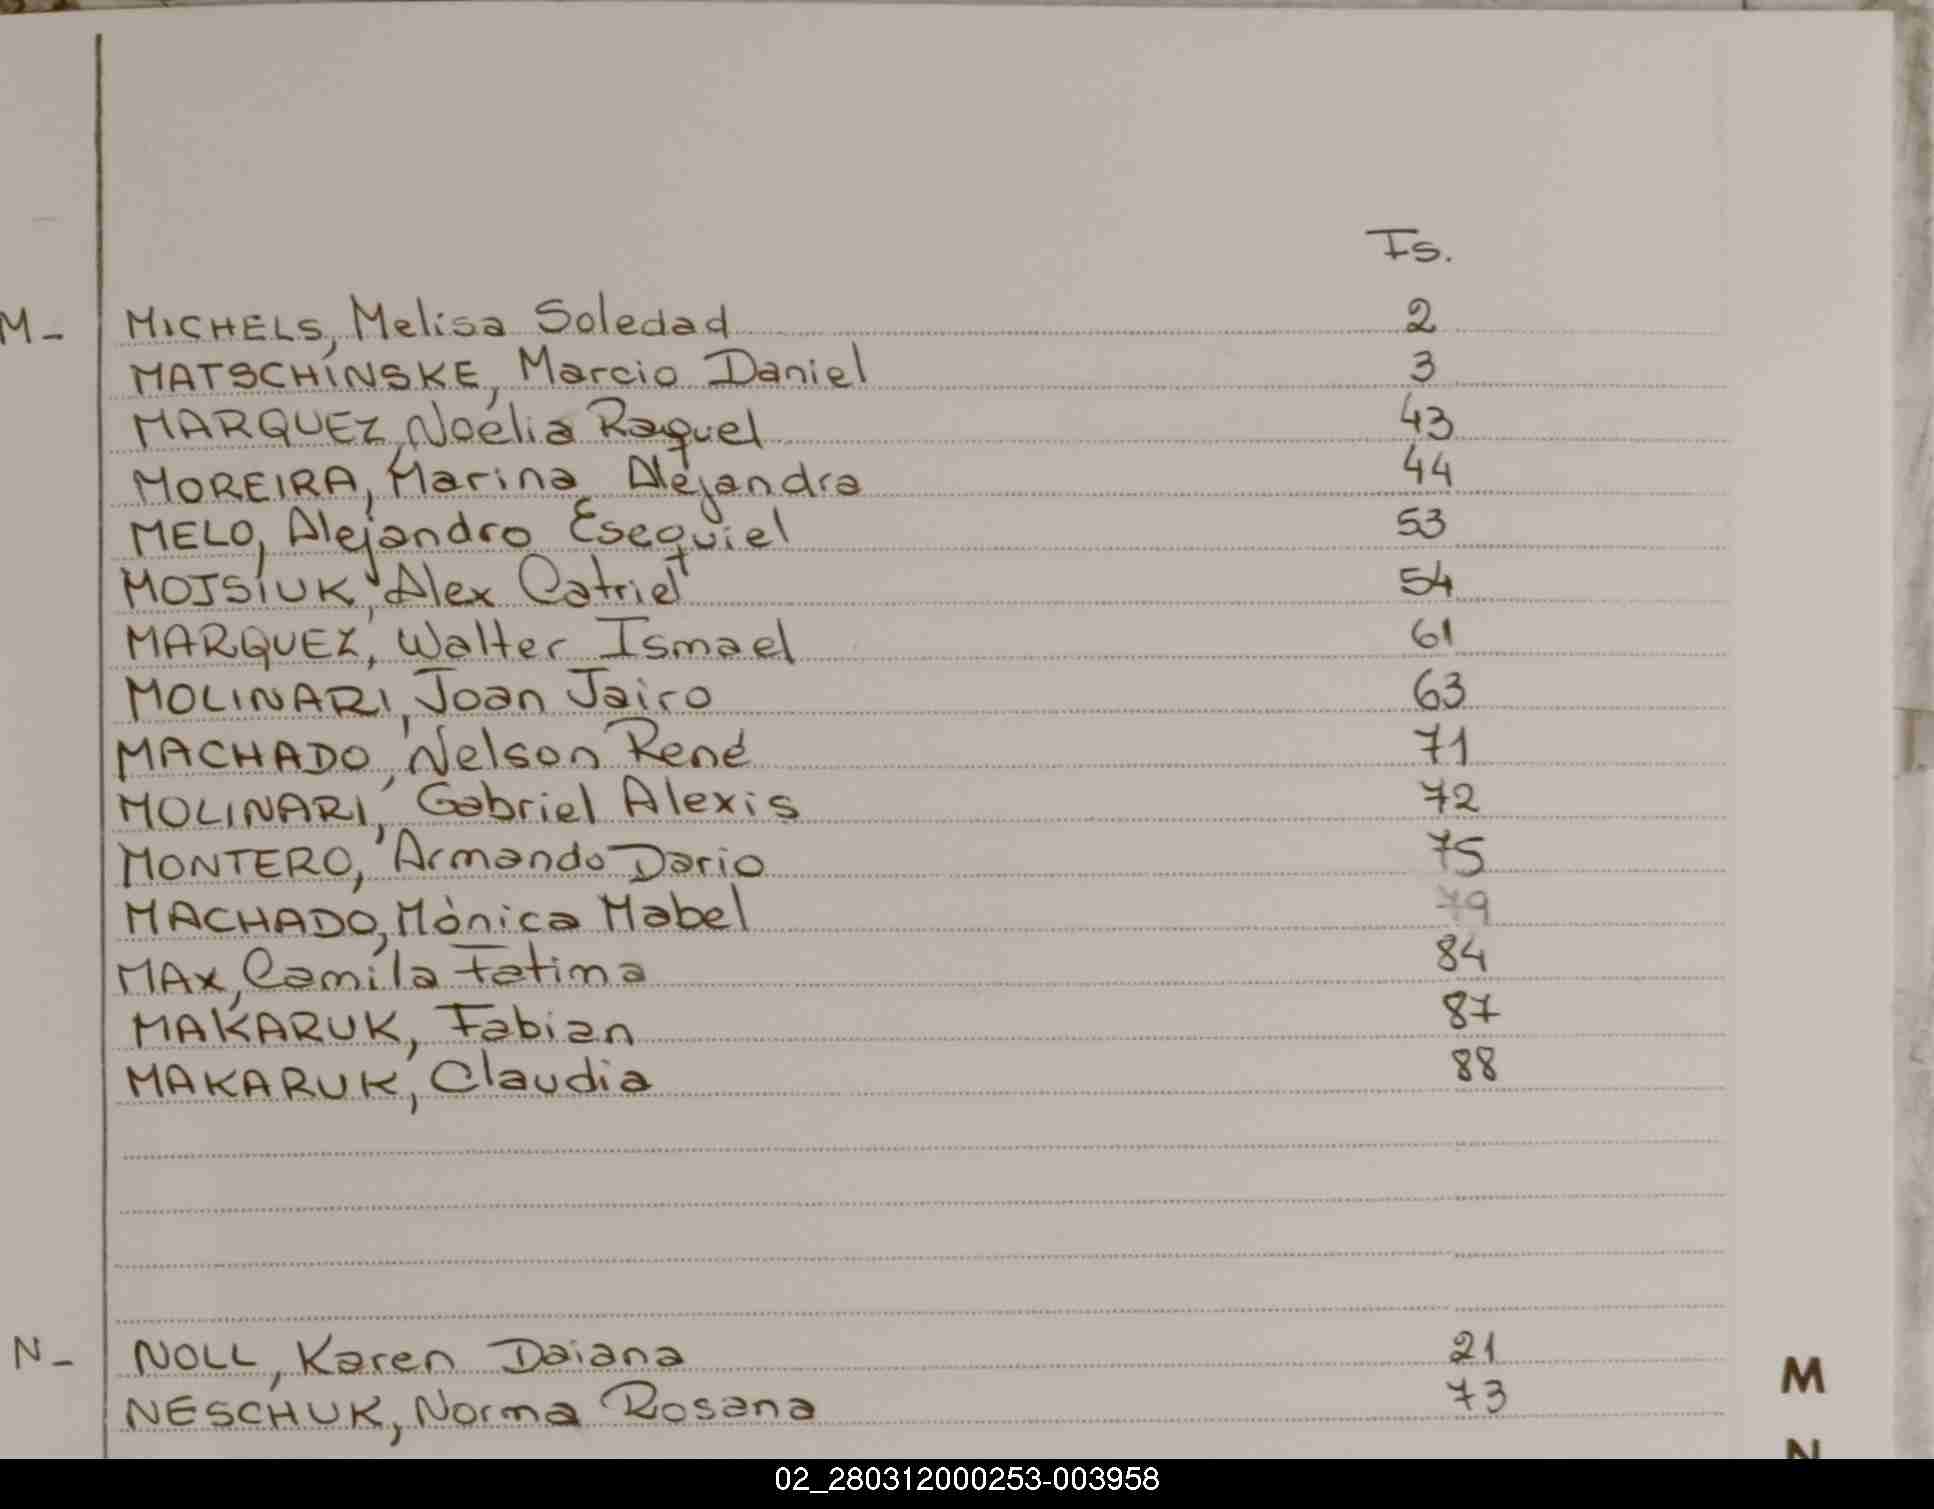 Fs.
M- MICHELS, Melisa Soledad 2
MATSCHINSKE, Marcio Daniel 3
MARQUEZ, Noelia Raquel 43
MOREIRA, Marina Alejandra 44
MELO, Alejandro Esequiel 53
MOJSIUK, Alex Catriel 54
MARQUEZ, Walter Ismael 61
MOLINARI, Joan Jairo 63
MACHADO, Nelson René 71
MOLINARI, Gabriel Alexis 72
MONTERO, Armando Dario 75
MACHADO, Mònica Mabel 79
MAX, Camila Fatima 84
MAKARUK, Fabian 87
MAKARUK, Claudia 88
N- NOLL, Karen Daiana 21
M
NESCHUK, Norma Rosana 73
N
02_280312000253-003958